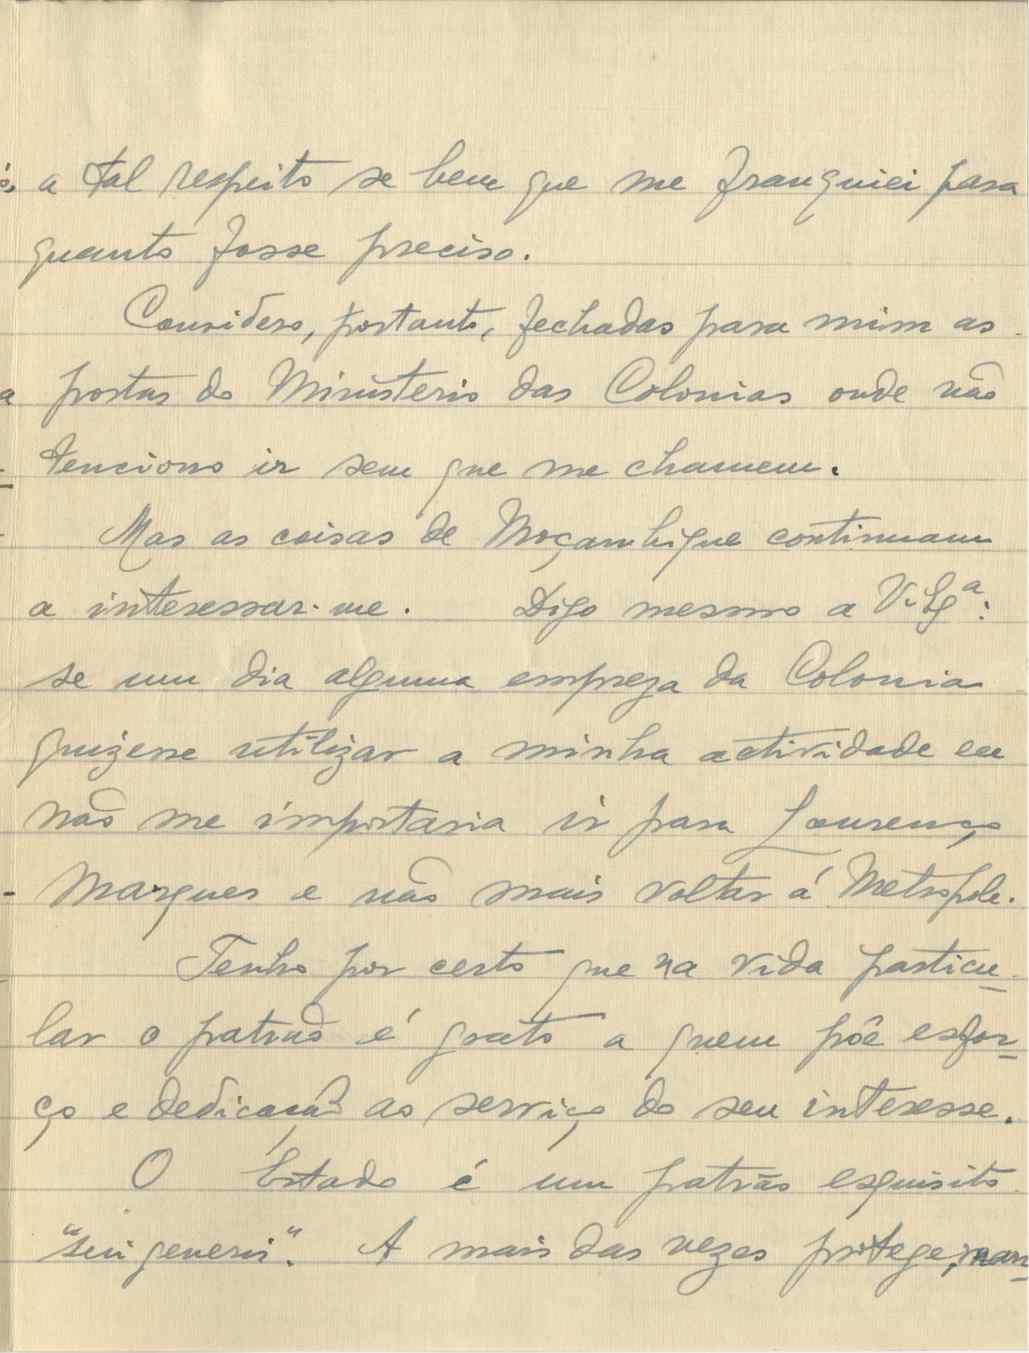 a tal respeito se bem que me franquiei para
quanto fosse preciso.
Considero, portanto, fechadas para mim as
portas do Ministerio das Colonias onde não
tenciono ir sem que me chamem.
Mas as coisas de Moçambique continuam
a interessar-me. Digo mesmo a V. Exª:
se um dia alguma empreza da Colonia
quizesse utilizar a minha actividade eu
não me importaria ir para Lourenço
Marques e não mais voltar á Metropole.
Tenho por certo que na vida particu-
lar o patrão é grato a quem põe esfor-
ço e dedicação ao serviço do seu interesse.
O Estado é um patrão esquisito
"sui generis". A mais das vezes protege,